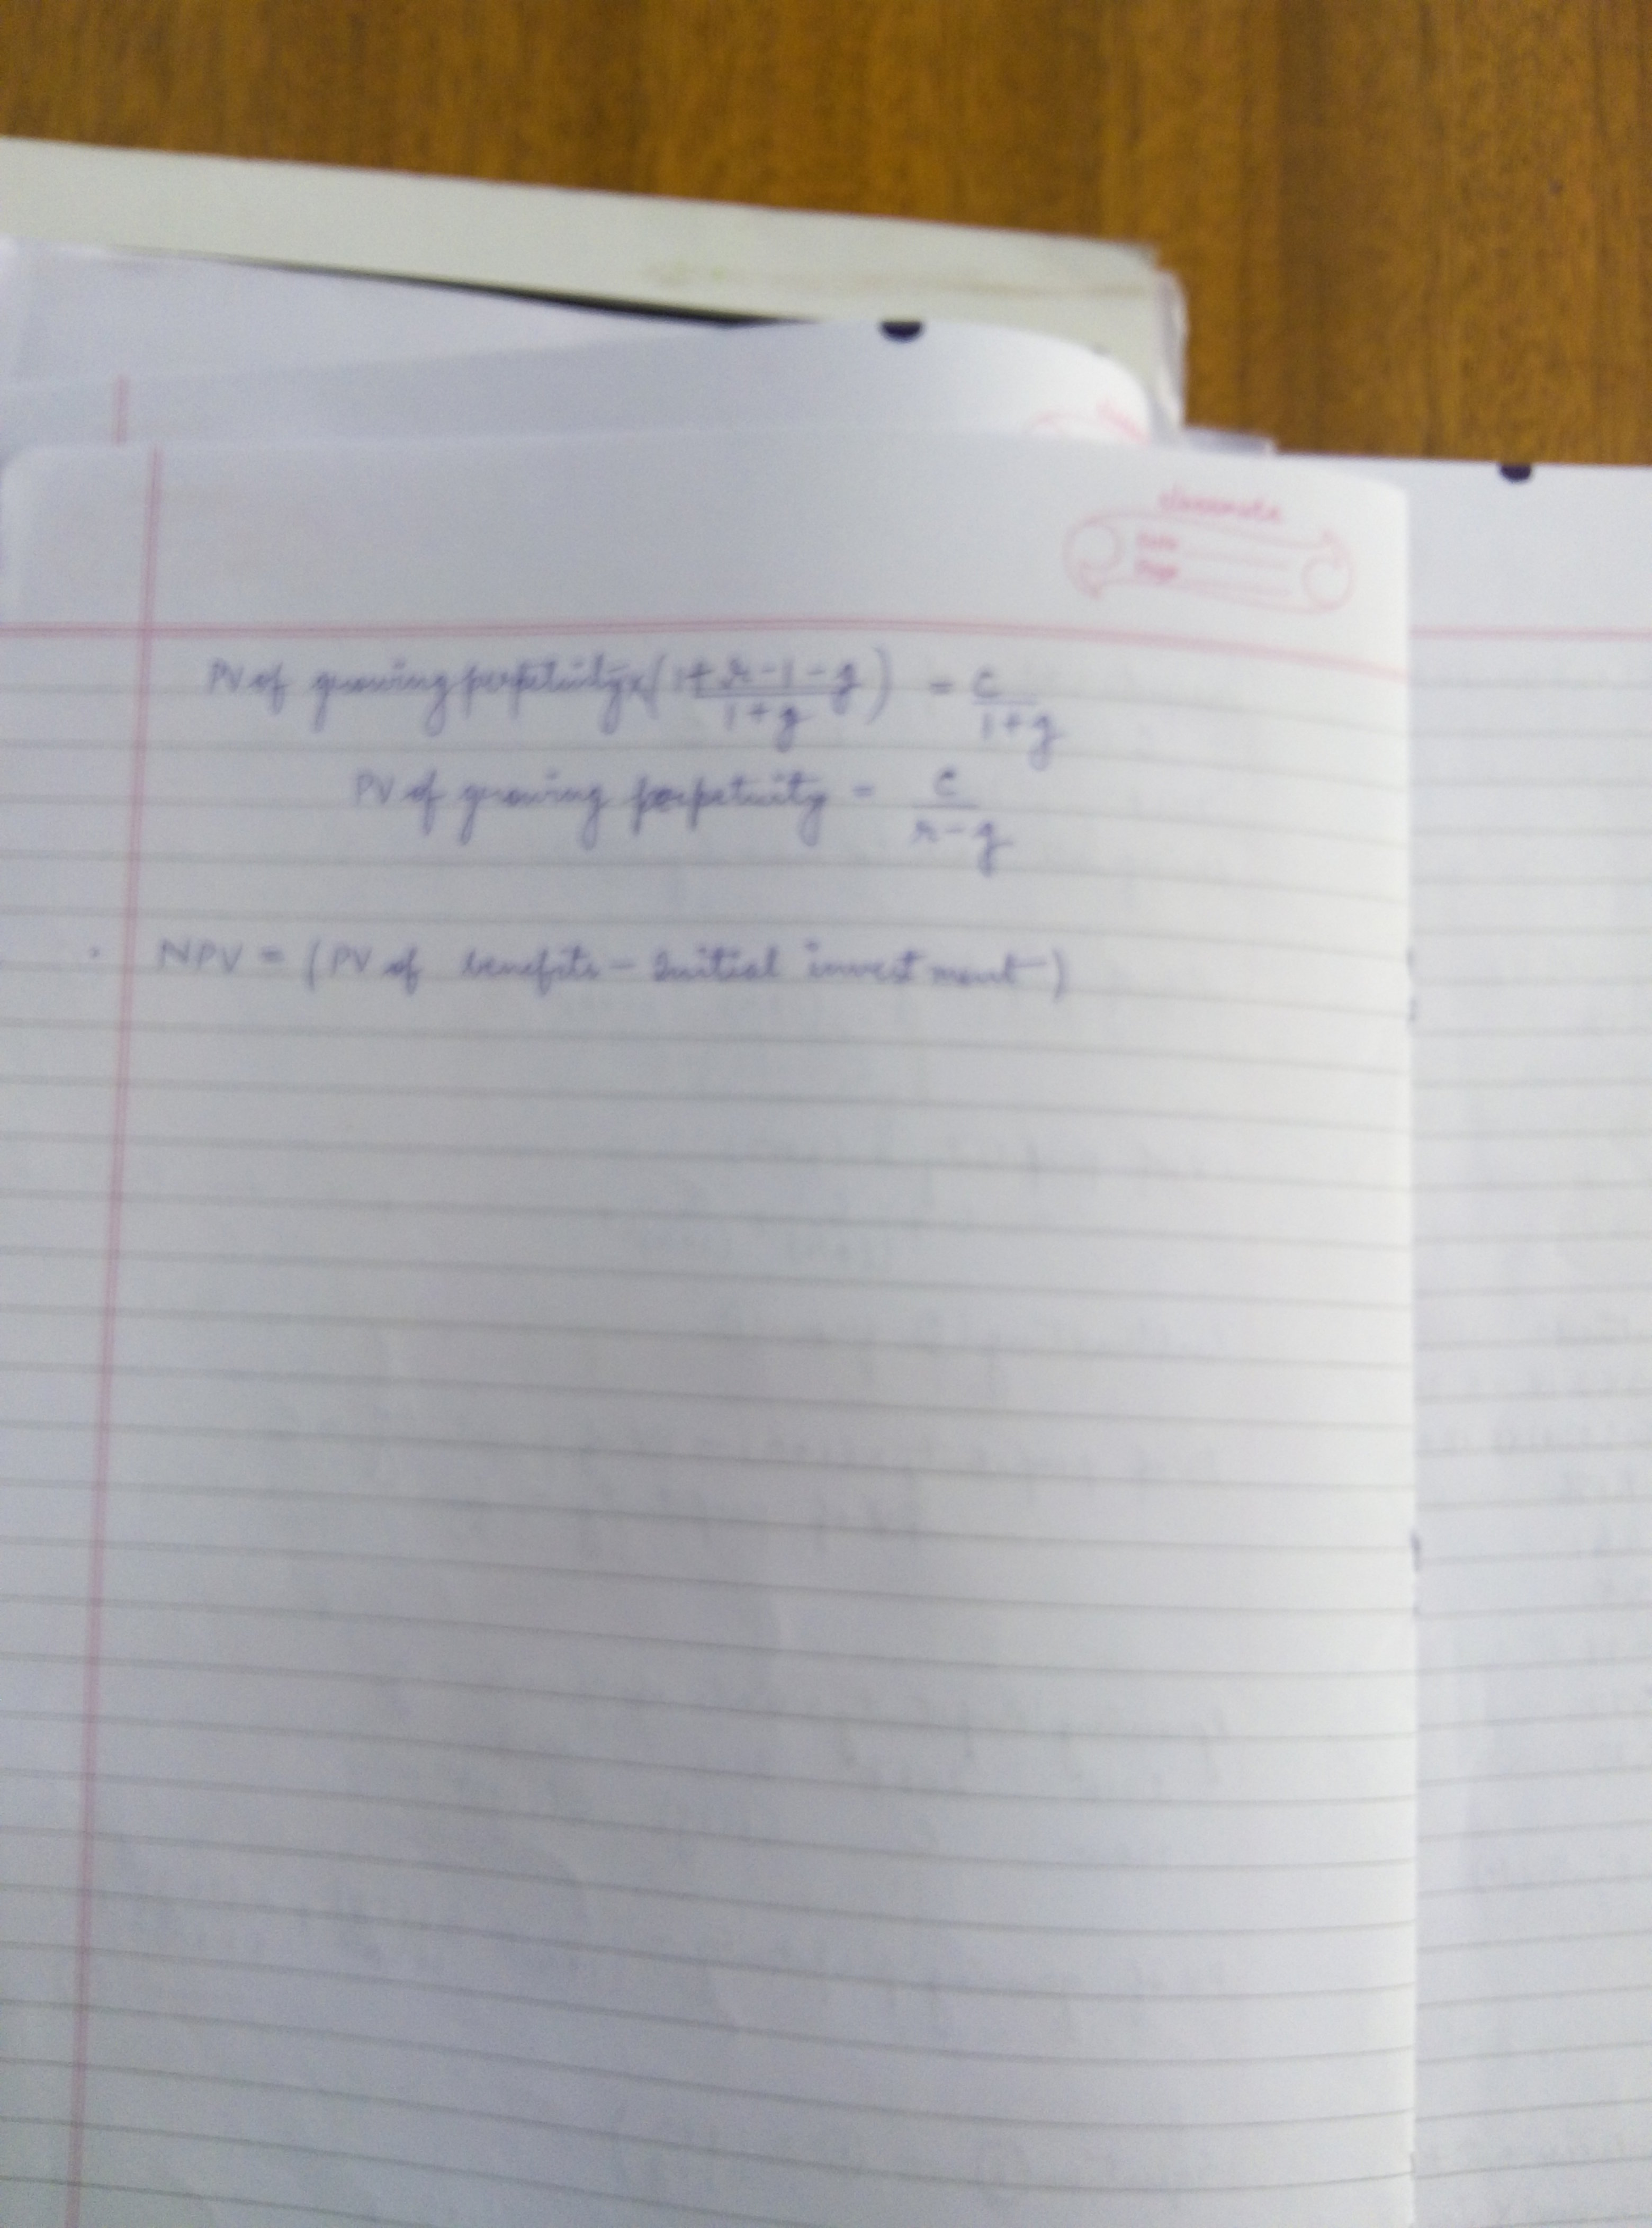 classmate
Date
Page
PV of growing perpetuity x (1+r-1-g / 1+g) = c / 1+g
PV of growing perpetuity = c / r-g
. NPV = (PV of benefits - Initial investment)